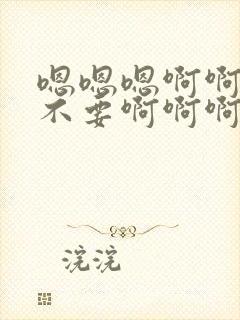 嗯嗯嗯啊啊
不要啊啊啊
浣浣